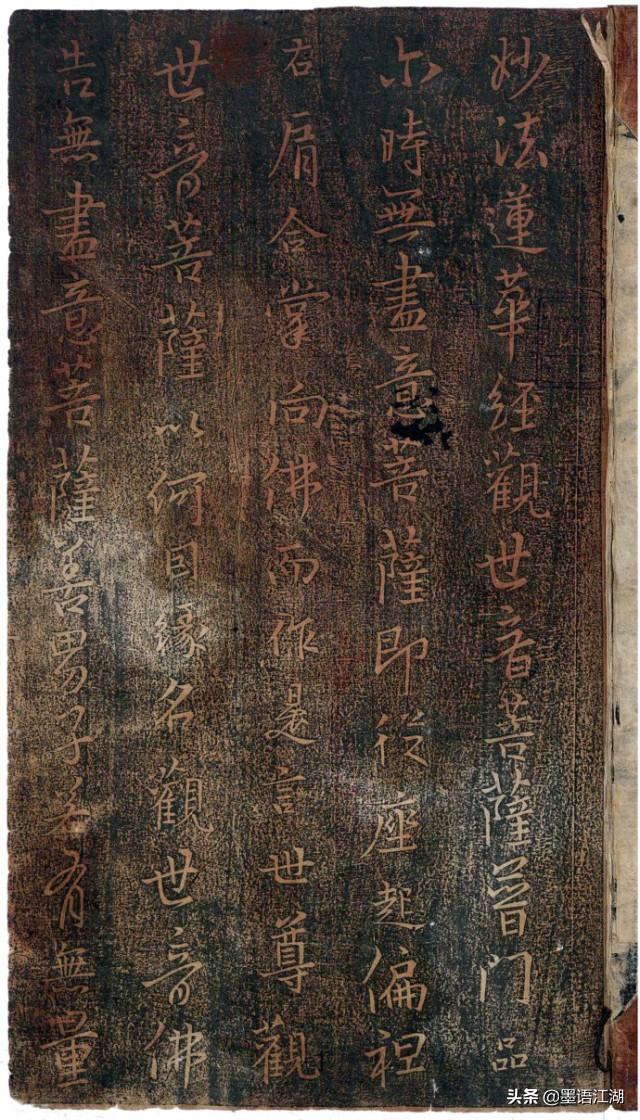 妙法蓮華經觀世音菩薩普門品
尔時無盡意菩薩即從座起偏袒
右肩合掌向佛而作是言世尊觀
世音菩薩以何因緣名觀世音佛
告無盡意菩薩善男子若有無量
头条 @墨语江湖